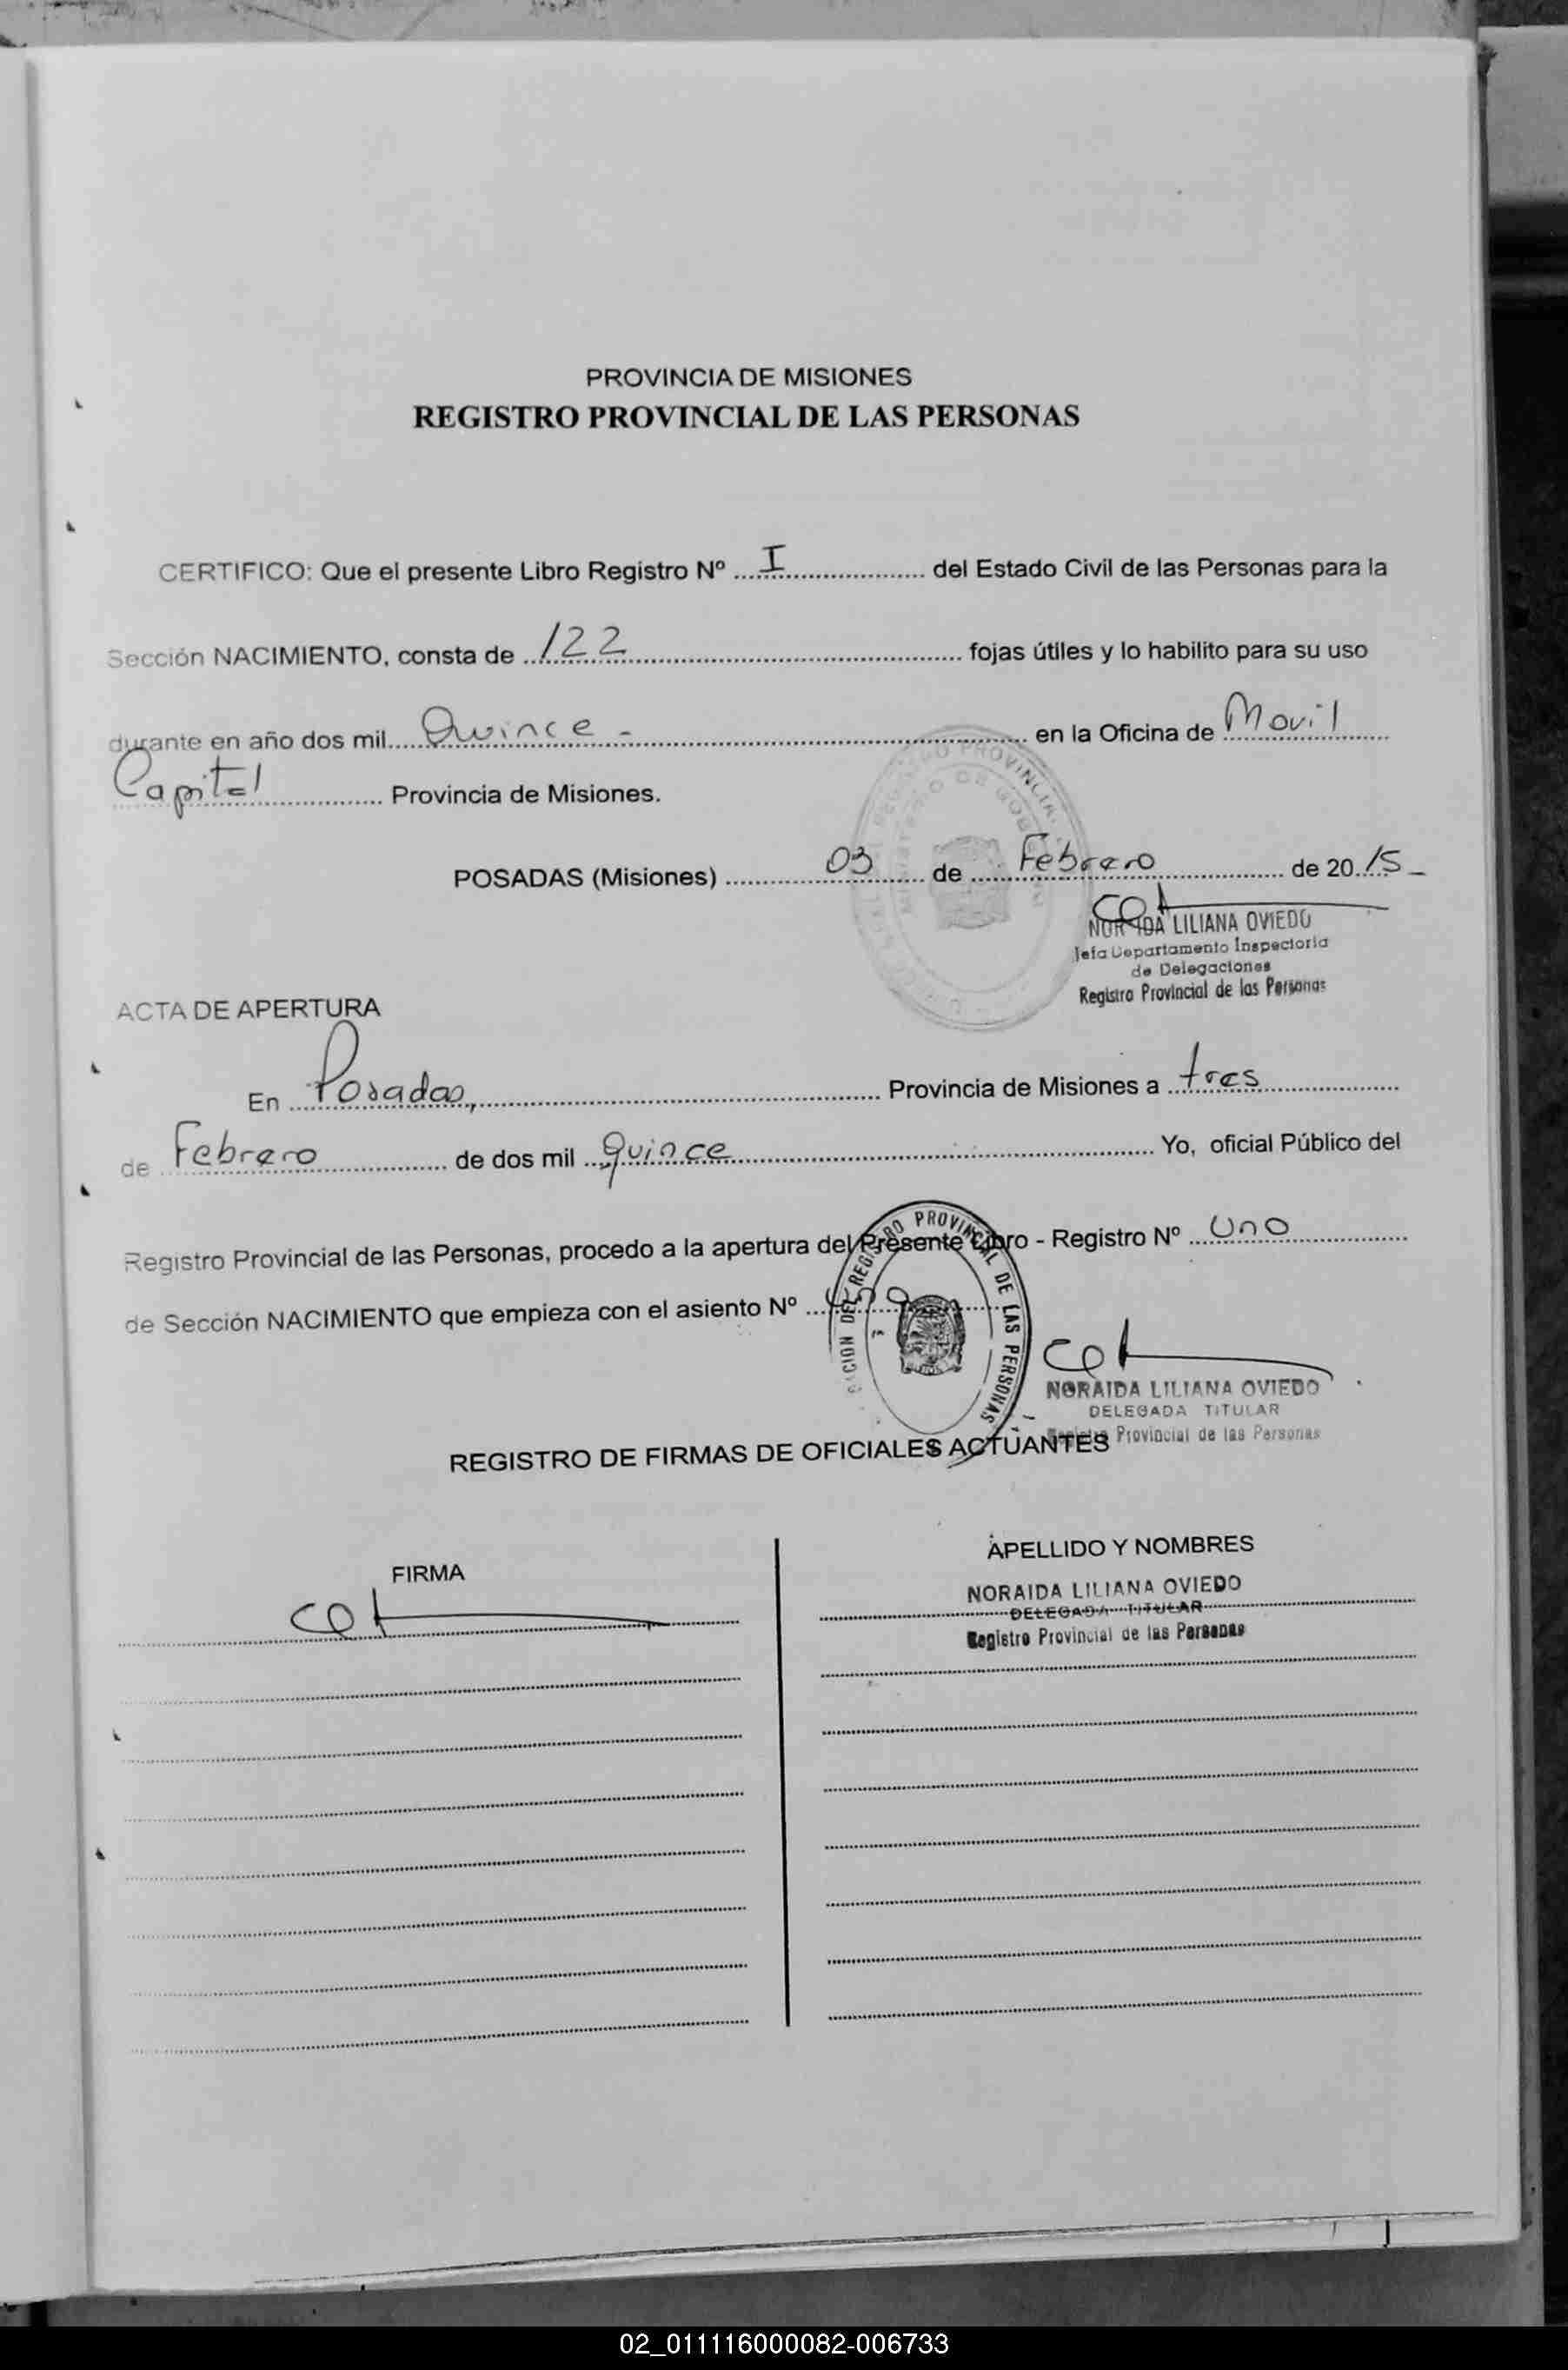 PROVINCIA DE MISIONES
REGISTRO PROVINCIAL DE LAS PERSONAS
CERTIFICO: Que el presente Libro Registro Nº I del Estado Civil de las Personas para la
Sección NACIMIENTO, consta de 122 fojas útiles y lo habilito para su uso
durante en año dos mil Quince - en la Oficina de Movil
Capital Provincia de Misiones.
POSADAS (Misiones) 03 de Febrero de 20 15 -
NORAIDA LILIANA OVIEDO
Jefa Departamento Inspectoria
de Delegaciones
Registro Provincial de las Personas
ACTA DE APERTURA
En Posadas, Provincia de Misiones a tres
de Febrero de dos mil quince Yo, oficial Público del
Registro Provincial de las Personas, procedo a la apertura del Presente Libro - Registro Nº Uno
de Sección NACIMIENTO que empieza con el asiento Nº
REGISTRO PROVINCIAL DE LAS PERSONAS
NORAIDA LILIANA OVIEDO
DELEGADA TITULAR
Registro Provincial de las Personas
REGISTRO DE FIRMAS DE OFICIALES ACTUANTES
FIRMA
APELLIDO Y NOMBRES
NORAIDA LILIANA OVIEDO
DELEGADA TITULAR
Registro Provincial de las Personas
02_011116000082-006733